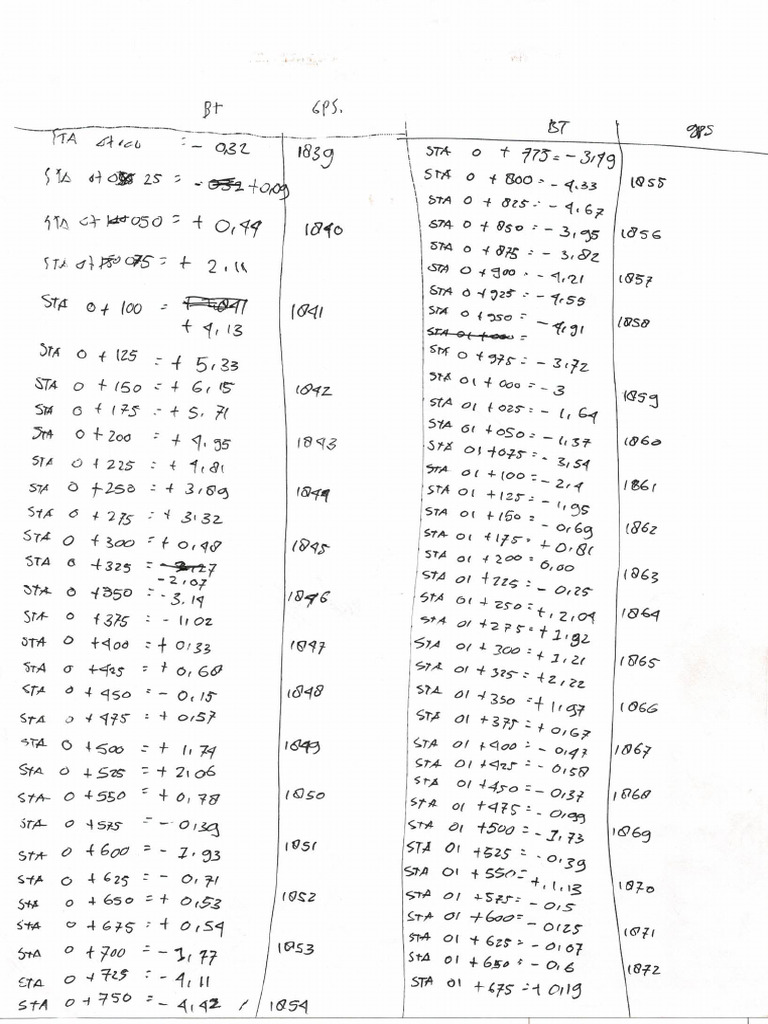 BT GPS.
STA 0+000 = - 0,32 1839
STA 0+025 = +0,09
STA 0+050 = + 0,44 1840
STA 0+075 = + 2,11
STA 0+100 = + 4,13 1841
STA 0+125 = + 5,33
STA 0+150 = + 6,15 1842
STA 0+175 = + 5,71
STA 0+200 = + 4,95 1843
STA 0+225 = + 4,81
STA 0+250 = + 3,89 1844
STA 0+275 = + 3,32
STA 0+300 = + 0,48 1845
STA 0+325 = -2,07
STA 0+350 = -3,14 1846
STA 0+375 = - 1,02
STA 0+400 = + 0,33 1847
STA 0+425 = + 0,68
STA 0+450 = - 0,15 1848
STA 0+475 = + 0,57
STA 0+500 = + 1,74 1849
STA 0+525 = + 2,06
STA 0+550 = + 0,78 1850
STA 0+575 = - 0,39
STA 0+600 = - 1,93 1851
STA 0+625 = - 0,71
STA 0+650 = + 0,53 1852
STA 0+675 = + 0,54
STA 0+700 = - 1,77 1853
STA 0+725 = - 4,11
STA 0+750 = - 4,42 1854
BT GPS
STA 0+775 = - 3,79
STA 0+800 = - 4,33 1855
STA 0+825 = - 4,67
STA 0+850 = - 3,95 1856
STA 0+875 = - 3,82
STA 0+900 = - 4,21 1857
STA 0+925 = - 4,55
STA 0+950 = - 4,91 1858
STA 01+000 =
STA 0+975 = - 3,72
STA 01+000 = - 3 1859
STA 01+025 = - 1,64
STA 01+050 = - 1,37 1860
STA 01+075 = - 3,54
STA 01+100 = - 2,4 1861
STA 01+125 = - 1,95
STA 01+150 = - 0,69 1862
STA 01+175 = + 0,81
STA 01+200 = 0,00 1863
STA 01+225 = - 0,25
STA 01+250 = + 2,04 1864
STA 01+275 = + 1,92
STA 01+300 = + 1,21 1865
STA 01+325 = + 2,22
STA 01+350 = + 1,97 1866
STA 01+375 = + 0,67
STA 01+400 = - 0,47 1867
STA 01+425 = - 0,58
STA 01+450 = - 0,37 1868
STA 01+475 = - 0,99
STA 01+500 = - 1,73 1869
STA 01+525 = - 0,39
STA 01+550 = + 1,13 1870
STA 01+575 = - 0,5
STA 01+600 = - 0,25 1871
STA 01+625 = - 0,07
STA 01+650 = - 0,6 1872
STA 01+675 = + 0,19